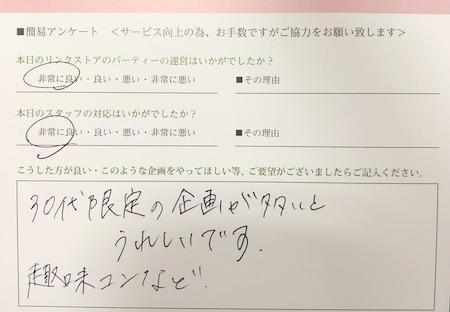 ■簡易アンケート ＜サービス向上の為、お手数ですがご協力をお願い致します＞
本日のリンクストアのパーティーの運営はいかがでしたか？
非常に良い・良い・悪い・非常に悪い ■その理由
本日のスタッフの対応はいかがでしたか？
非常に良い・良い・悪い・非常に悪い ■その理由
こうした方が良い・このような企画をやってほしい等、ご要望がございましたらご記入ください。
30代限定の企画が多いと
うれしいです.
趣味コンなど.